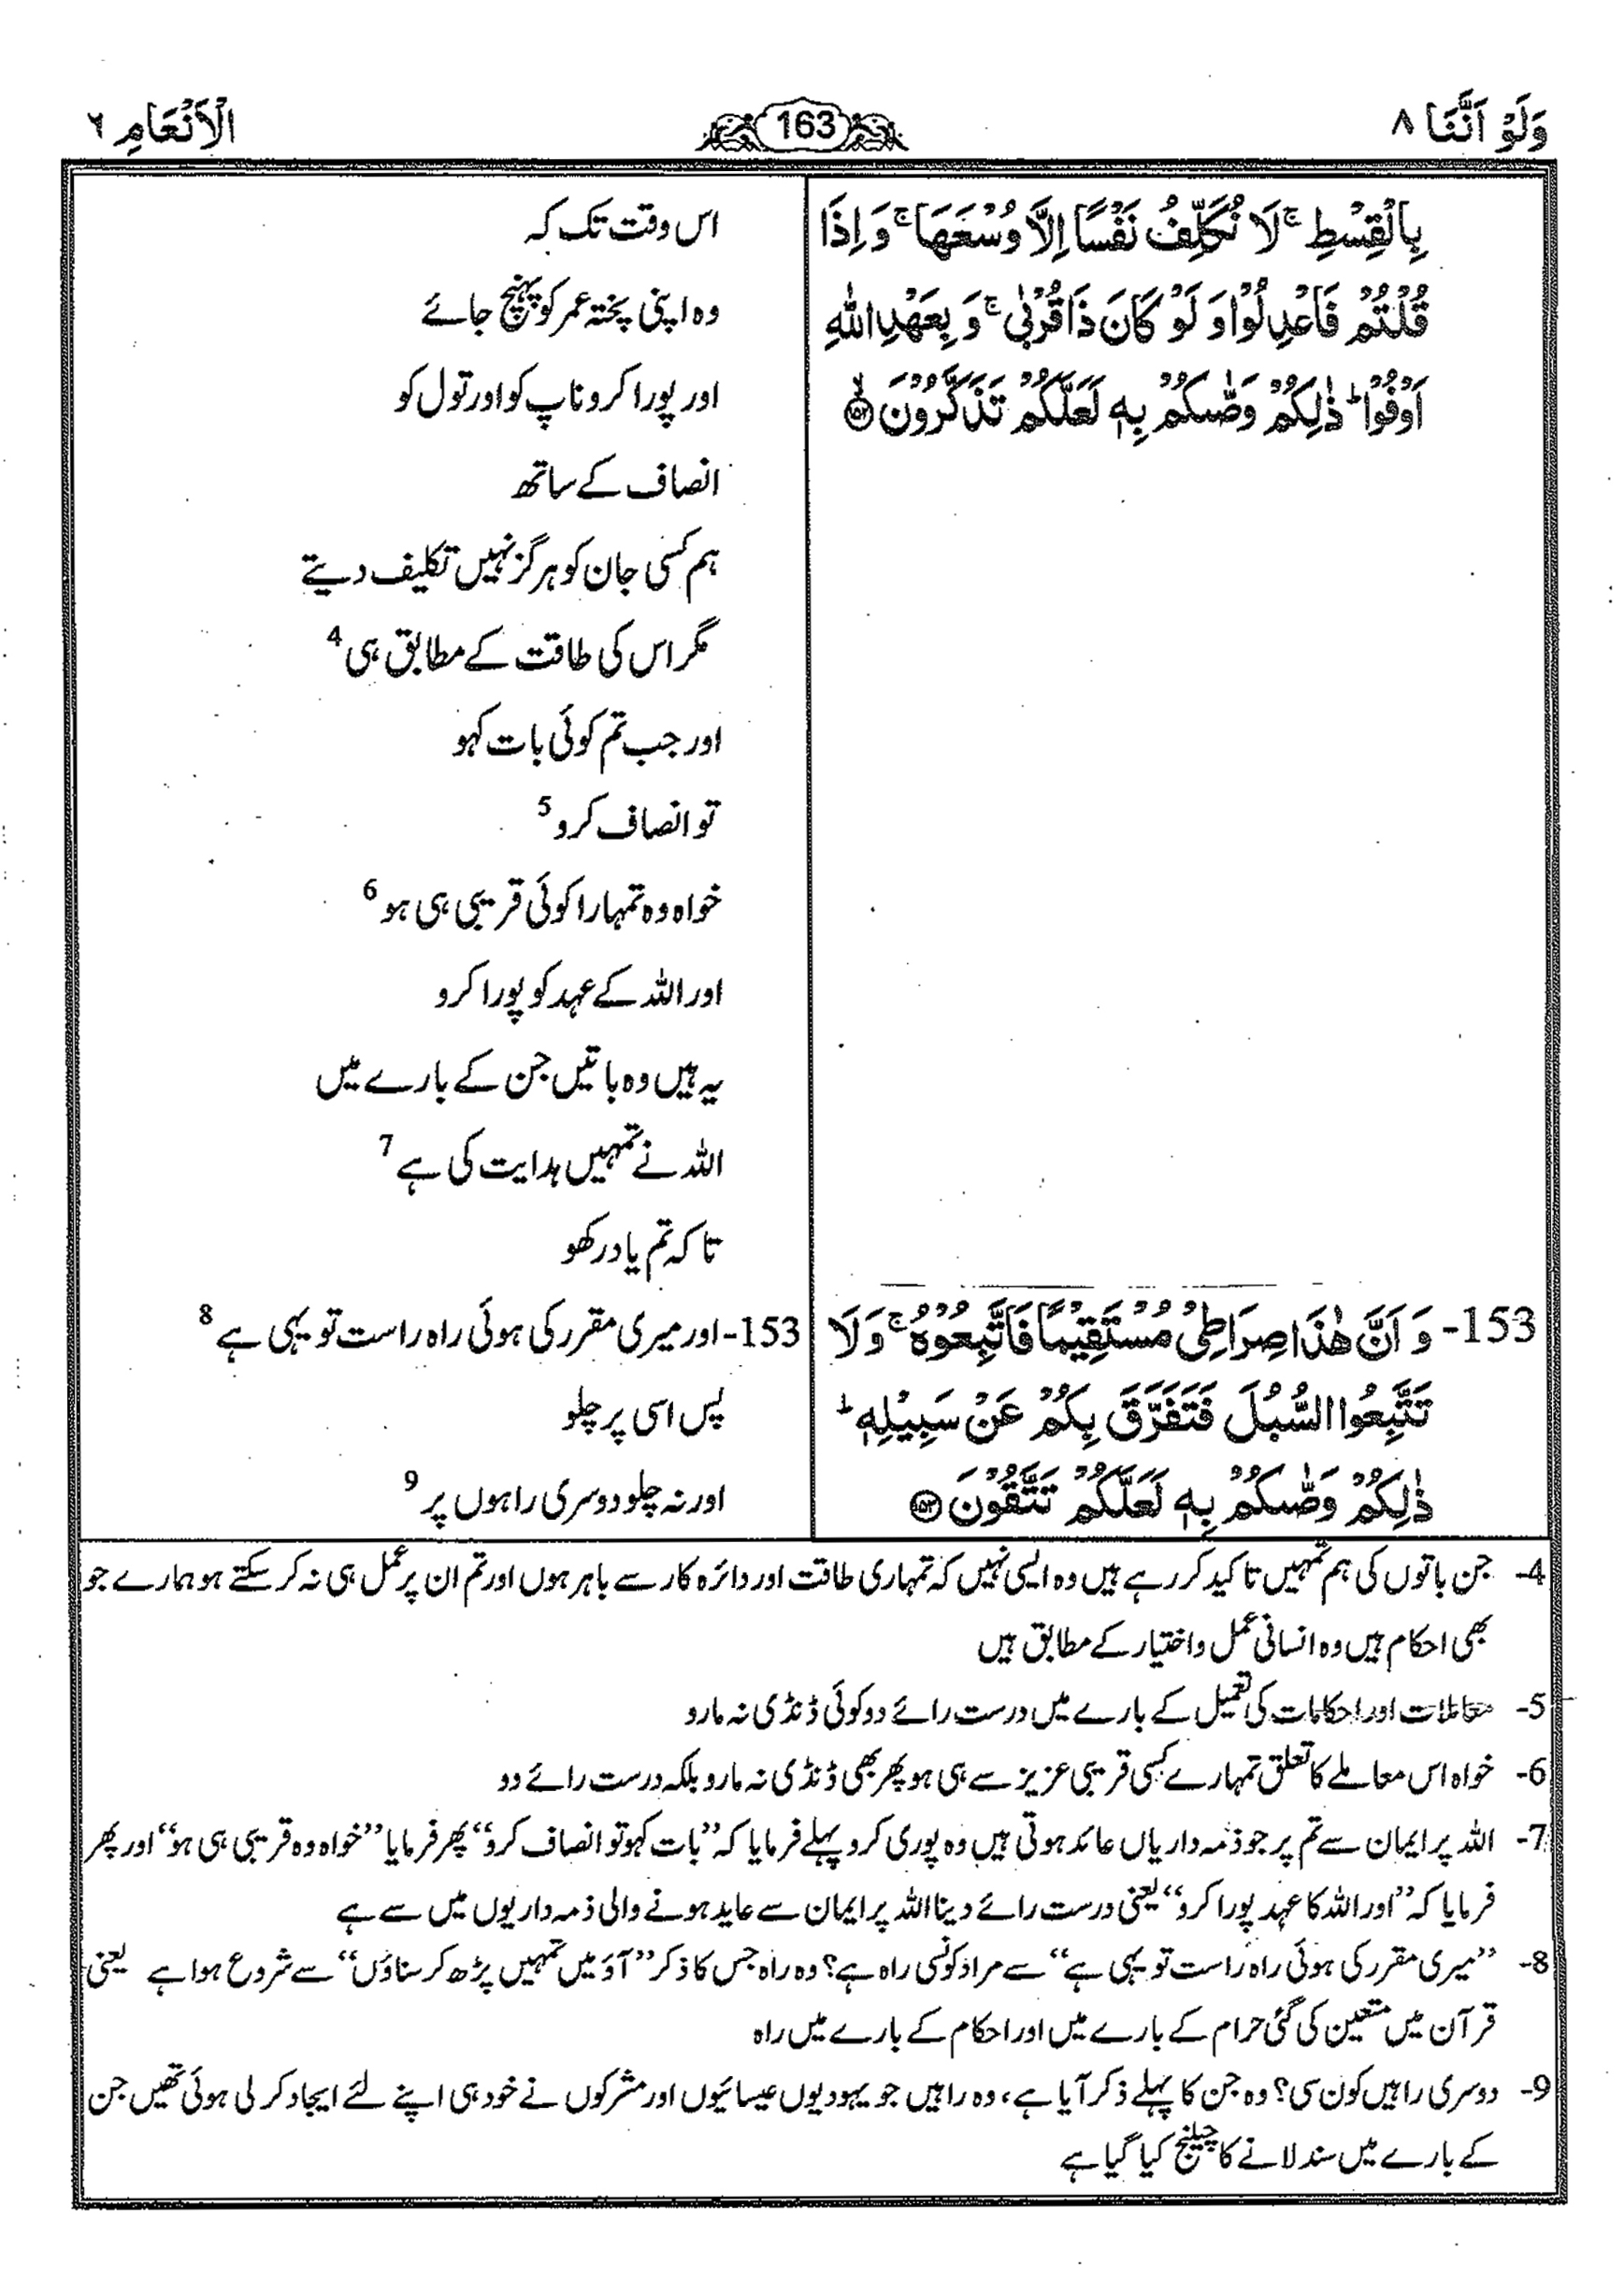 وَلَوْ اَنَّنَا ٨
163
الْاَنْعَامِ ٦
بِالْقِسْطِ ۚ لَا نُكَلِّفُ نَفْسًا اِلَّا وُسْعَهَا ۚ وَ اِذَا
قُلْتُمْ فَاعْدِلُوْا وَ لَوْ كَانَ ذَا قُرْبٰى ۚ وَ بِعَهْدِ اللّٰهِ
اَوْفُوْا ؕ ذٰلِكُمْ وَصّٰىكُمْ بِهٖ لَعَلَّكُمْ تَذَكَّرُوْنَ ۙ﴿۱۵۲﴾
اس وقت تک کہ
وہ اپنی پختہ عمر کو پہنچ جائے
اور پورا کرو ناپ کو اور تول کو
انصاف کے ساتھ
ہم کسی جان کو ہرگز نہیں تکلیف دیتے
مگر اس کی طاقت کے مطابق ہی 4
اور جب تم کوئی بات کہو
تو انصاف کرو 5
خواہ وہ تمہارا کوئی قریبی ہی ہو 6
اور اللہ کے عہد کو پورا کرو
یہ ہیں وہ باتیں جن کے بارے میں
اللہ نے تمہیں ہدایت کی ہے 7
تاکہ تم یاد رکھو
153- وَ اَنَّ هٰذَا صِرَاطِیْ مُسْتَقِیْمًا فَاتَّبِعُوْهُ ۚ وَ لَا
تَتَّبِعُوا السُّبُلَ فَتَفَرَّقَ بِكُمْ عَنْ سَبِیْلِهٖ ؕ
ذٰلِكُمْ وَصّٰىكُمْ بِهٖ لَعَلَّكُمْ تَتَّقُوْنَ ﴿۱۵۳﴾
153- اور میری مقرر کی ہوئی راہ راست تو یہی ہے 8
پس اسی پر چلو
اور نہ چلو دوسری راہوں پر 9
4- جن باتوں کی ہم تمہیں تاکید کر رہے ہیں وہ ایسی نہیں کہ تمہاری طاقت اور دائرہ کار سے باہر ہوں اور تم ان پر عمل ہی نہ کر سکتے ہو ہمارے جو
بھی احکام ہیں وہ انسانی عمل و اختیار کے مطابق ہیں
5- معاملات اور احکامات کی تعمیل کے بارے میں درست رائے دو کوئی ڈنڈی نہ مارو
6- خواہ اس معاملے کا تعلق تمہارے کسی قریبی عزیز سے ہی ہو پھر بھی ڈنڈی نہ مارو بلکہ درست رائے دو
7- اللہ پر ایمان سے تم پر جو ذمہ داریاں عائد ہوتی ہیں وہ پوری کرو پہلے فرمایا کہ ”بات کہو تو انصاف کرو“ پھر فرمایا ”خواہ وہ قریبی ہی ہو“ اور پھر
فرمایا کہ ”اور اللہ کا عہد پورا کرو“ یعنی درست رائے دینا اللہ پر ایمان سے عاید ہونے والی ذمہ داریوں میں سے ہے
8- ”میری مقرر کی ہوئی راہ راست تو یہی ہے“ سے مراد کونسی راہ ہے؟ وہ راہ جس کا ذکر ”آؤ میں تمہیں پڑھ کر سناؤں“ سے شروع ہوا ہے یعنی
قرآن میں متعین کی گئی حرام کے بارے میں اور احکام کے بارے میں راہ
9- دوسری راہیں کون سی؟ وہ جن کا پہلے ذکر آیا ہے، وہ راہیں جو یہودیوں عیسائیوں اور مشرکوں نے خود ہی اپنے لئے ایجاد کر لی ہوئی تھیں جن
کے بارے میں سند لانے کا چیلنج کیا گیا ہے